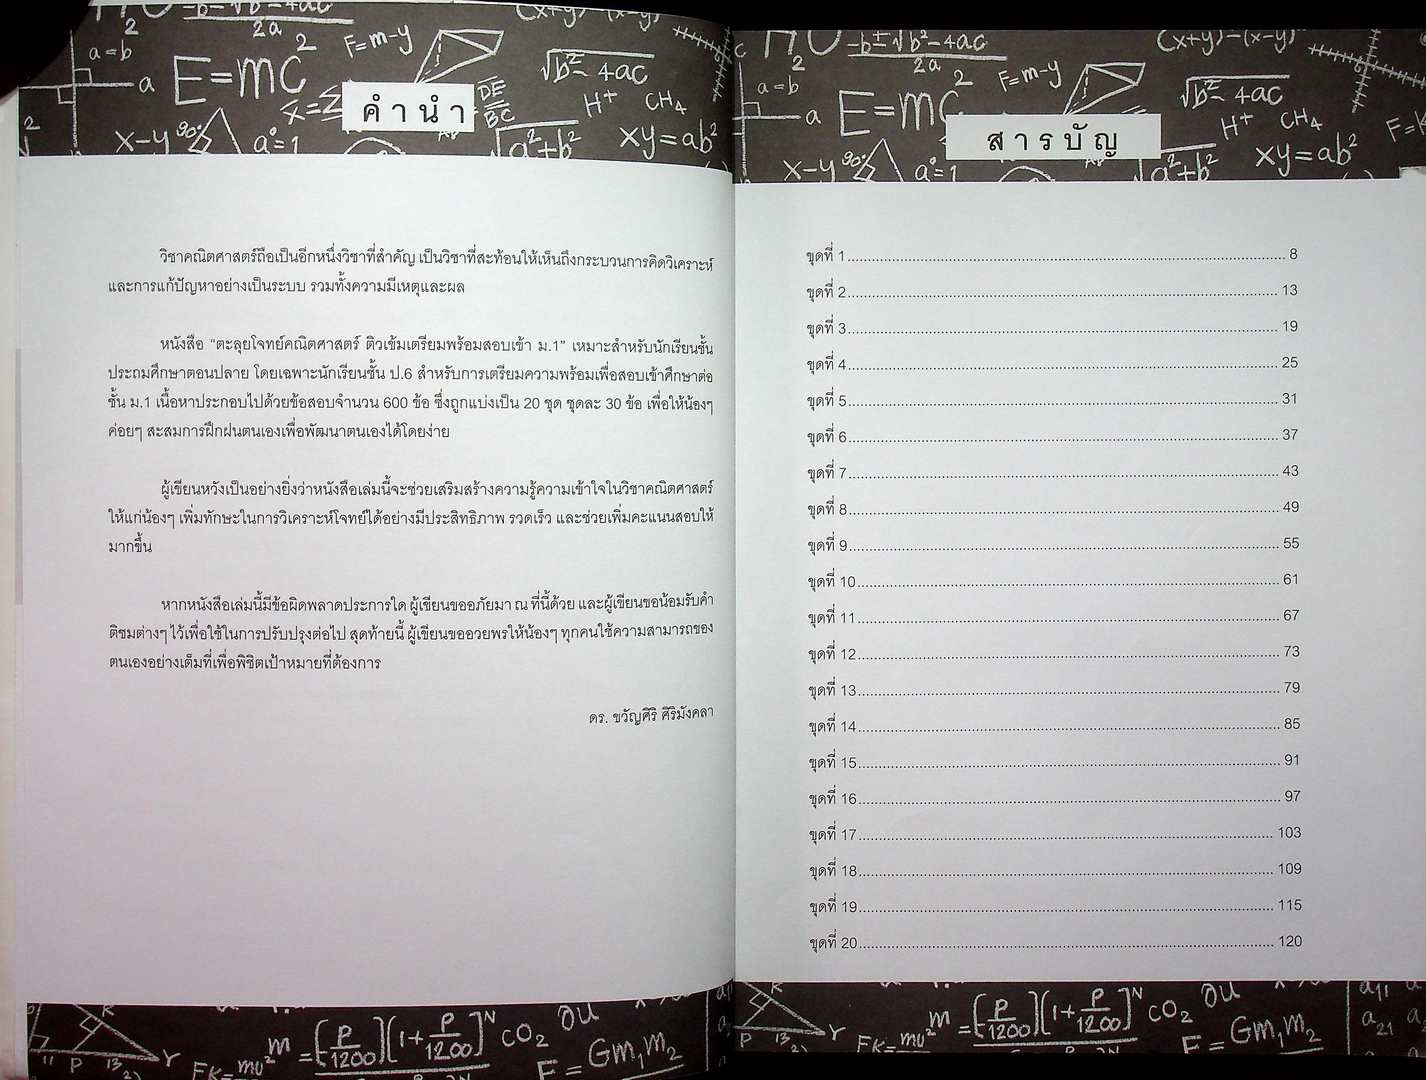 คำนำ
วิชาคณิตศาสตร์ถือเป็นอีกหนึ่งวิชาที่สำคัญ เป็นวิชาที่สะท้อนให้เห็นถึงกระบวนการคิดวิเคราะห์
และการแก้ปัญหาอย่างเป็นระบบ รวมทั้งความมีเหตุและผล
หนังสือ “ตะลุยโจทย์คณิตศาสตร์ ติวเข้มเตรียมพร้อมสอบเข้า ม.1” เหมาะสำหรับนักเรียนชั้น
ประถมศึกษาตอนปลาย โดยเฉพาะนักเรียนชั้น ป.6 สำหรับการเตรียมความพร้อมเพื่อสอบเข้าศึกษาต่อ
ชั้น ม.1 เนื้อหาประกอบไปด้วยข้อสอบจำนวน 600 ข้อ ซึ่งถูกแบ่งเป็น 20 ชุด ชุดละ 30 ข้อ เพื่อให้น้องๆ
ค่อยๆ สะสมการฝึกฝนตนเองเพื่อพัฒนาตนเองได้โดยง่าย
ผู้เขียนหวังเป็นอย่างยิ่งว่าหนังสือเล่มนี้จะช่วยเสริมสร้างความรู้ความเข้าใจในวิชาคณิตศาสตร์
ให้แก่น้องๆ เพิ่มทักษะในการวิเคราะห์โจทย์ได้อย่างมีประสิทธิภาพ รวดเร็ว และช่วยเพิ่มคะแนนสอบให้
มากขึ้น
หากหนังสือเล่มนี้มีข้อผิดพลาดประการใด ผู้เขียนขออภัยมา ณ ที่นี้ด้วย และผู้เขียนขอน้อมรับคำ
ติชมต่างๆ ไว้เพื่อใช้ในการปรับปรุงต่อไป สุดท้ายนี้ ผู้เขียนขออวยพรให้น้องๆ ทุกคนใช้ความสามารถของ
ตนเองอย่างเต็มที่เพื่อพิชิตเป้าหมายที่ต้องการ
ดร. ขวัญศิริ ศิริมังคลา
สารบัญ
ชุดที่ 1 8
ชุดที่ 2 13
ชุดที่ 3 19
ชุดที่ 4 25
ชุดที่ 5 31
ชุดที่ 6 37
ชุดที่ 7 43
ชุดที่ 8 49
ชุดที่ 9 55
ชุดที่ 10 61
ชุดที่ 11 67
ชุดที่ 12 73
ชุดที่ 13 79
ชุดที่ 14 85
ชุดที่ 15 91
ชุดที่ 16 97
ชุดที่ 17 103
ชุดที่ 18 109
ชุดที่ 19 115
ชุดที่ 20 120